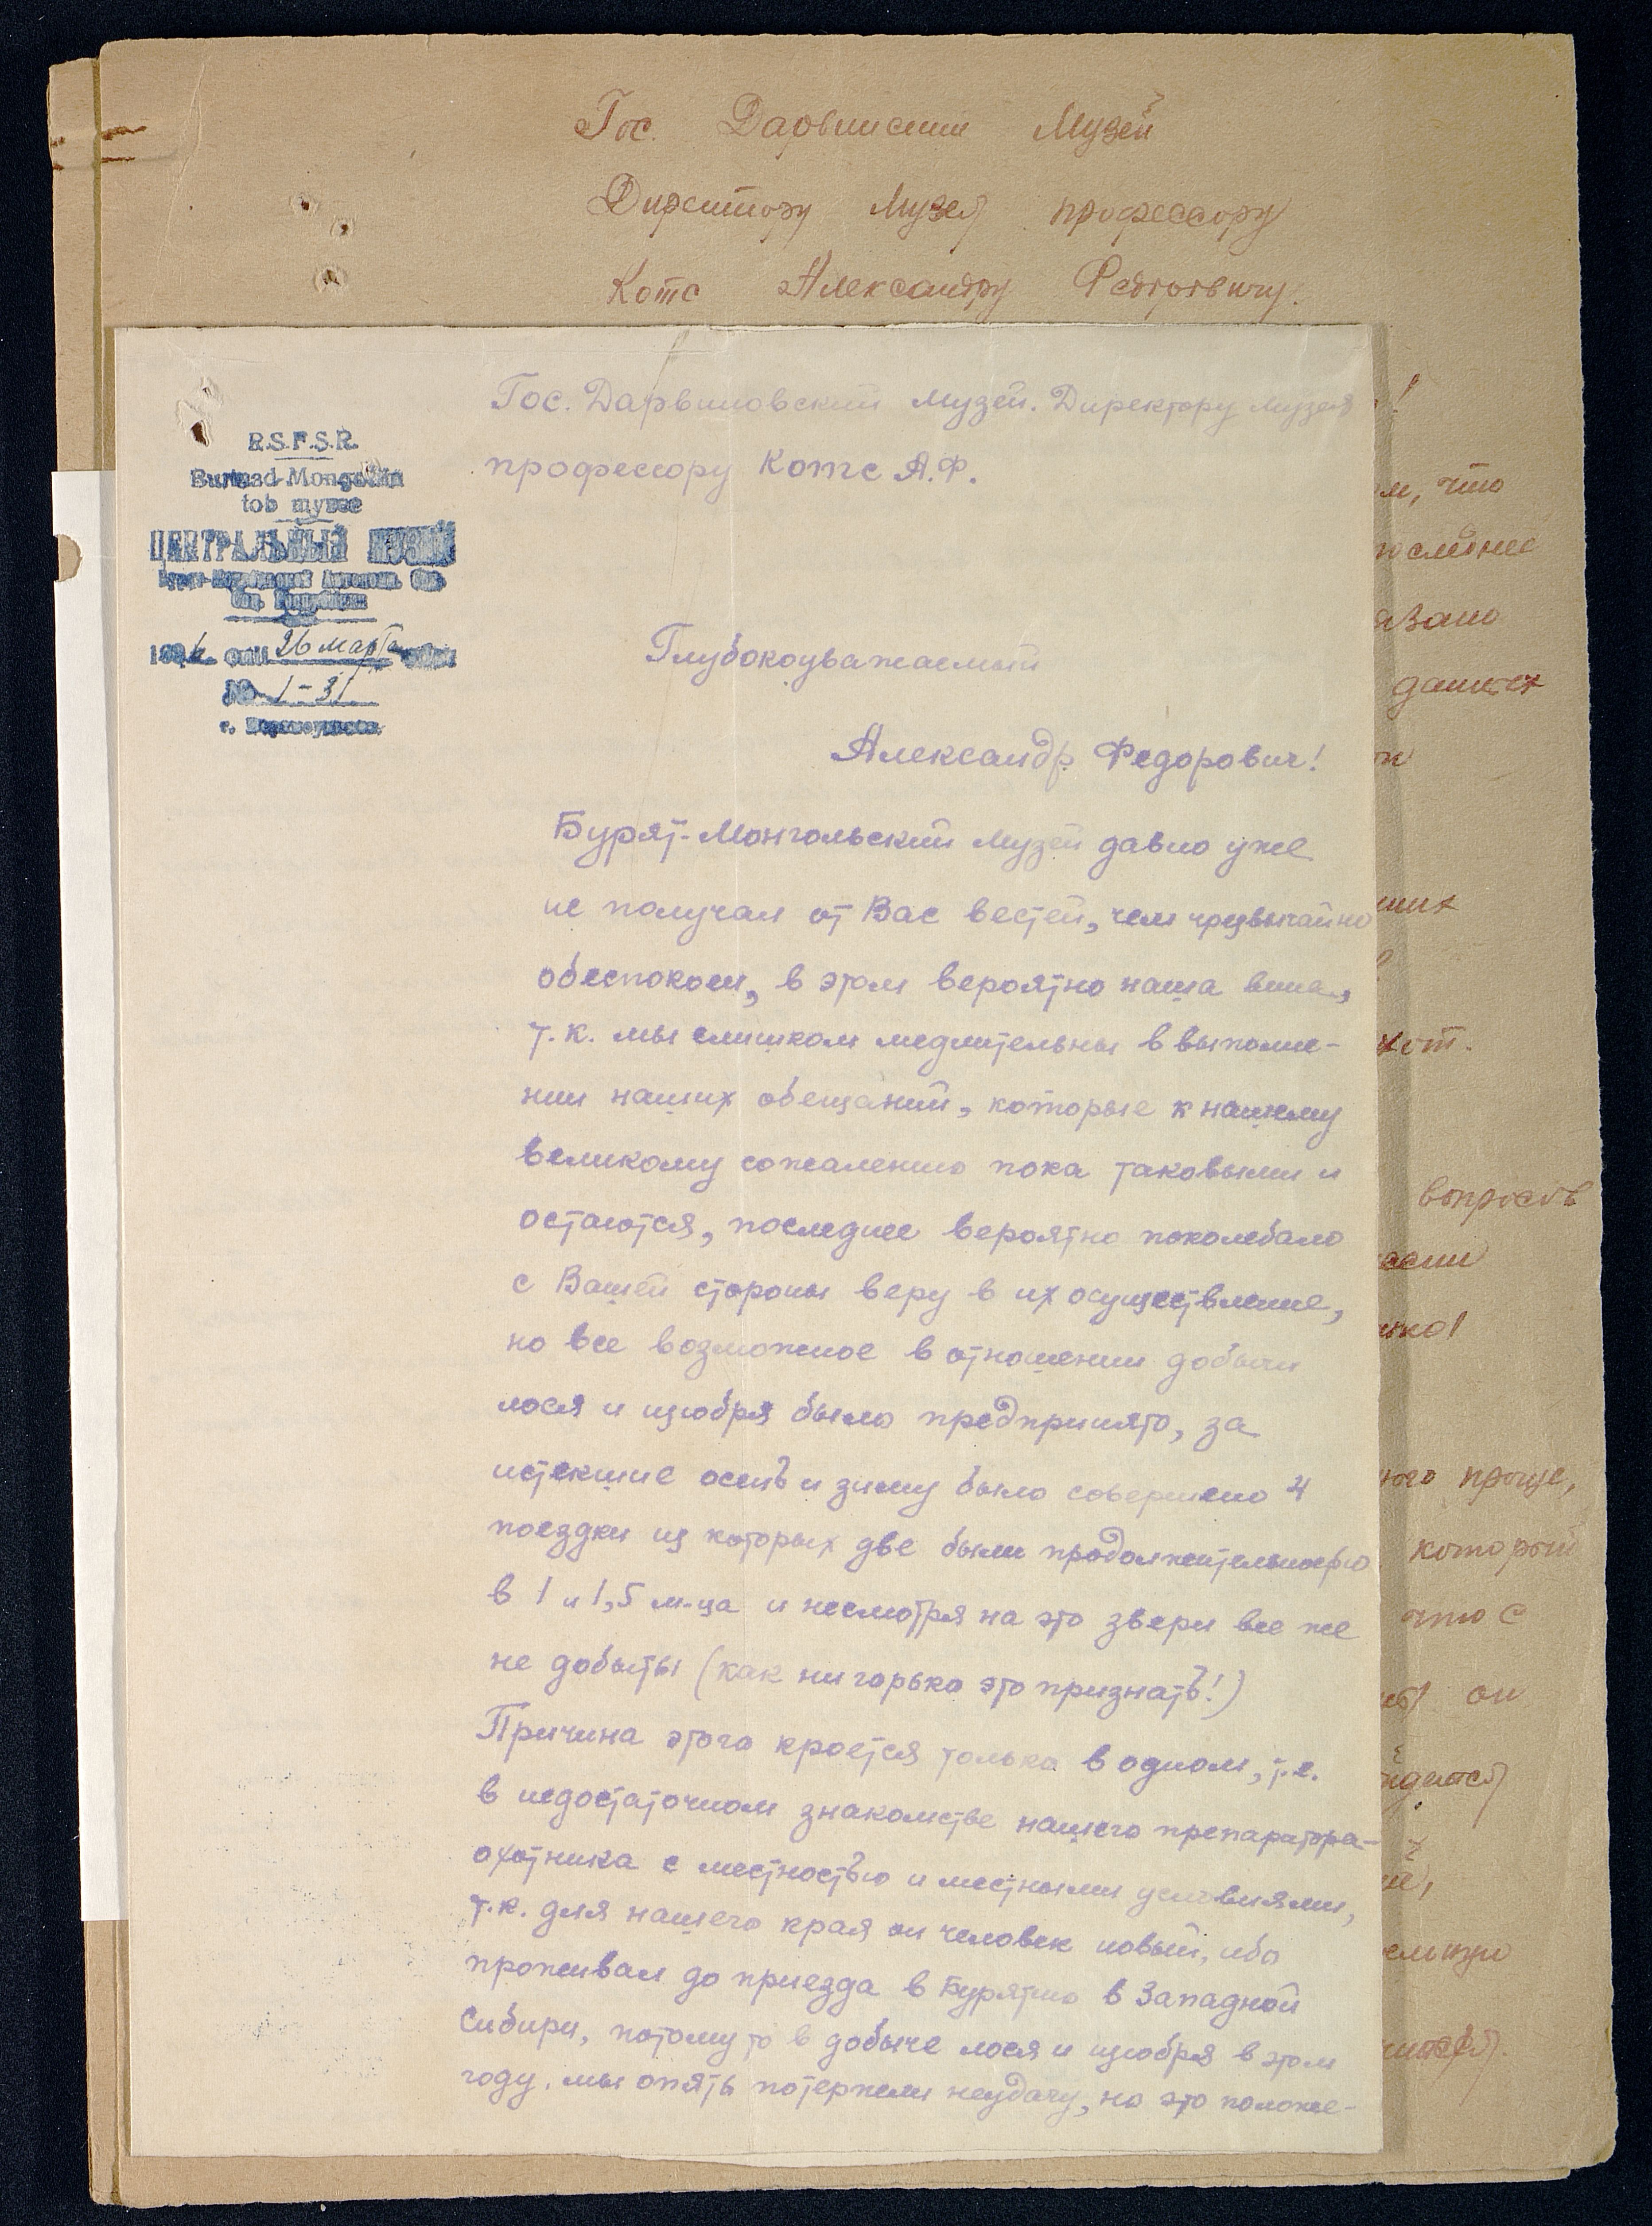 Гос. Дарвински Музей
Директору Музея профессору
Котс Александру Федоровичу.
Гос. Дарвиновский музей. Директору музея
профессору Котс А.Ф.
R.S.F.S.R.
Buriaad-Mongoliin
tob myzee
ЦЕНТРАЛЬНЫЙ МУЗЕЙ
Бурят-Монгольской Автономн. Сов.
Соц. Республики
26 марта
№ 1-31
г. Верхнеудинск
Глубокоуважаемый
Александр Федорович!
Бурят-Монгольский музей давно уже
не получал от Вас вестей, чем чрезвычайно
обеспокоен, в этом вероятно наша вина,
т.к. мы слишком медлительны в выполне-
нии наших обещаний, которые к нашему
великому сожалению пока таковыми и
остаются, последнее вероятно поколебало
с Вашей стороны веру в их осуществление,
но все возможное в отношении добычи
лося и изюбря было предпринято, за
истекшие осень и зиму было совершено 4
поездки из которых две были продолжительностью
в 1 и 1,5 м-ца и несмотря на это звери все же
не добыты (как ни горько это признать!)
Причина этого кроется только в одном, т.е.
в недостаточном знакомстве нашего препаратора-
охотника с местностью и местными условиями,
т.к. для нашего края он человек новый, ибо
проживал до приезда в Бурятию в Западной
Сибири, потому то в добыче лося и изюбря в этом
году, мы опять потерпели неудачу, но это положе-
м, что
последнее
язано
данных
вопросов
ного проще,
который
что с
он